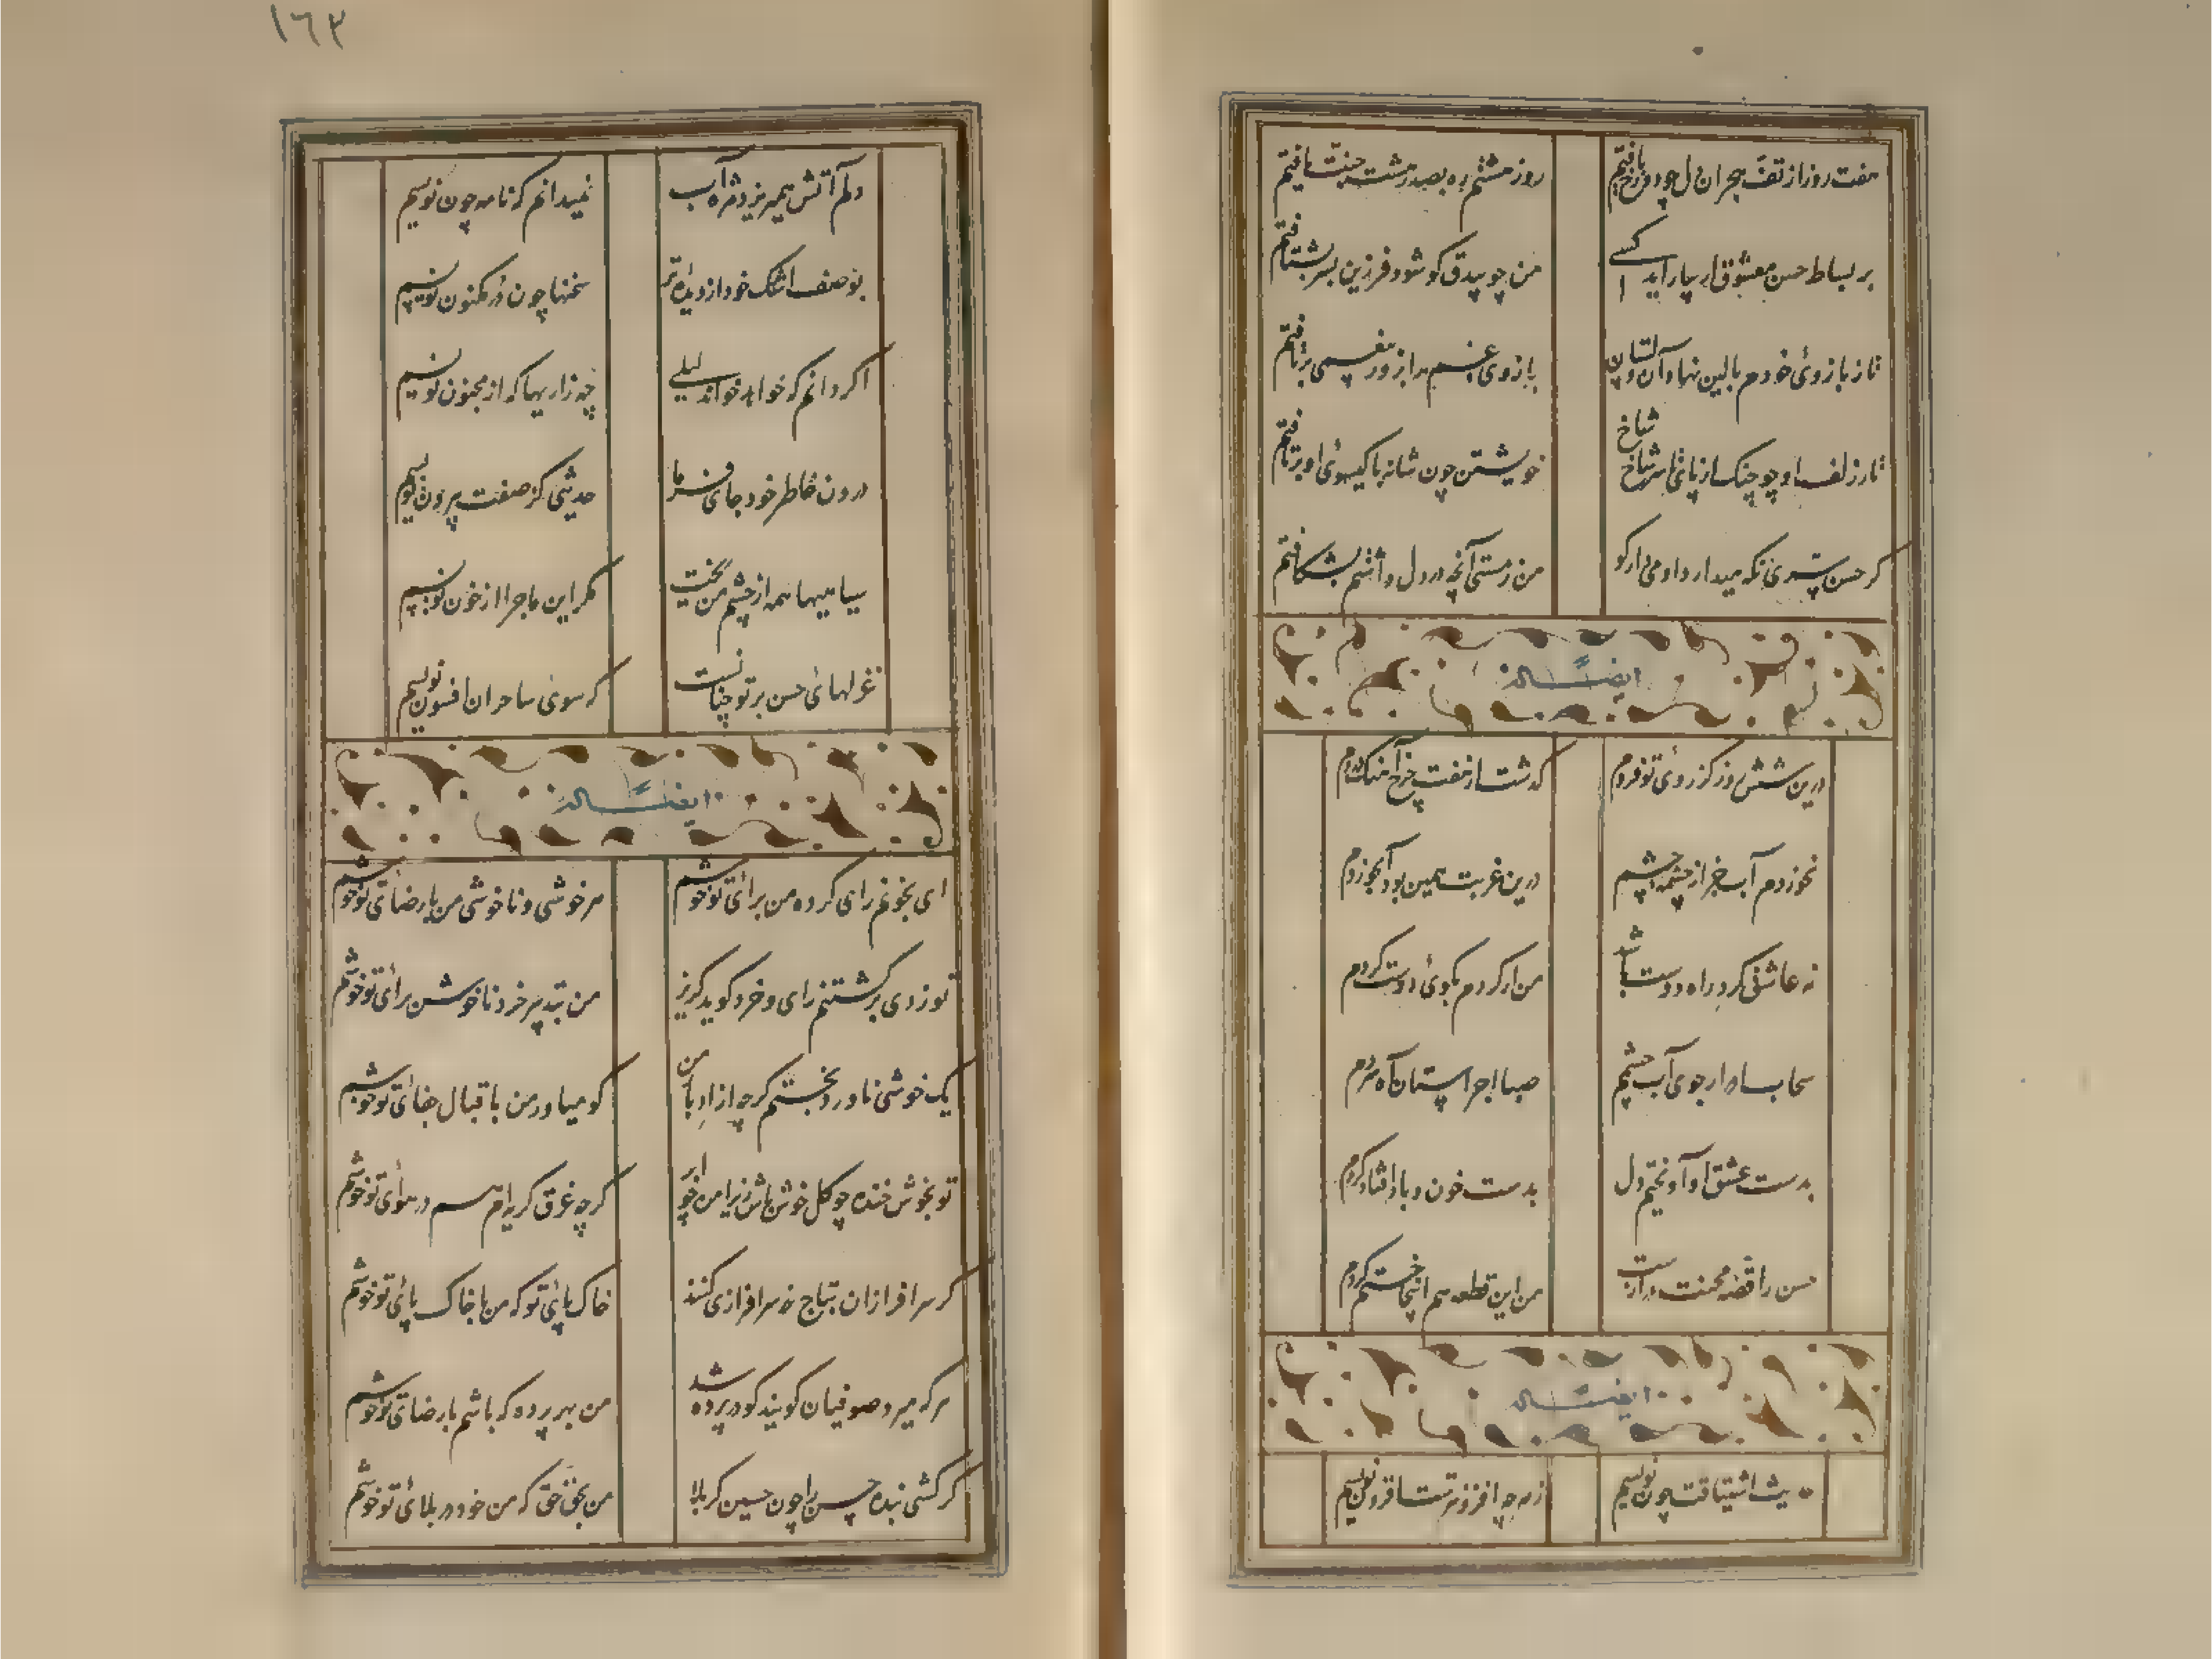 هفت روز از تف هجران دل چو دوزخ یافتم
روز هشتم ره بصدر هشت جنت یافتم
بر بساط حسن معشوق ار بپا آید کسی
من چو بیدق کو شود فرزین بسر بشتافتم
تا ز بازوی خودم بالین نهاد آن
بازوی غم را بزور بر تافتم
تا ز لف او چو چنگ از پای تا سر شاخ شاخ
خویشتن چون شانه با گیسوی او بر تافتم
گر حسن نگه میدارد او می دار گو
من ز مستی آنچه در دل داشتم بشکافتم
ایضاً له
درین شش روز کز روی تو فردم
گذشت از هفت چرخ
نخوردم آب جز از چشمه چشم
درین غربت همین بود آبخوردم
نه عاشق گرد راه دوست باشد
من ار گردم بکوی دوست گردم
سحابا ار جوی آب چشمم
صبا
بدست عشق او آویختم دل
بدست خون و باد افتاد کردم
حسن را قصه محنت درازست
من این قطعه هم اینجا ختم کردم
ایضاً له
حدیث اشتیاقت چون نویسم
ز هر چه افزونترست افزون نویسم
۱۶۲
دلم آتش همیریزد مژه آب
نمیدانم که نامه چون نویسم
بوصف اشک خود از دیده تر
سخنها چون در مکنون نویسم
اگر دانم که خواهد خواند لیلی
چه زاریها که از مجنون نویسم
درون خاطر خود جای فرما
حدیثی کز صفت بیرون نویسم
سیاهیها همه از چشم من ریخت
مگر این ماجرا از خون نویسم
غزلهای حسن بر تو چنانست
که سوی ساحران افسون نویسم
ایضاً له
ای بخونم رای کرده من برای تو خوشم
هر خوشی و ناخوشی من با رضای تو خوشم
تو زدی بر کشتنم رای و خرد گوید گریز
من بتدبیر خرد ناخوش برای تو خوشم
یک خوشی ناورد بختم گرچه از ادبار من
گو میاور من باقبال جفای تو خوشم
تو بخوش خنده چو گل خوش باش زیرا من چو ابر
گرچه غرق گریه‌ام هم در هوای تو خوشم
گر سرافرازان بتاج زر سرافرازی کنند
خاک پای تو که من با خاک پای تو خوشم
هر که میرد صوفیان گویند کو در پرده شد
من بهر پرده که باشم با رضای تو خوشم
گر کشی بنده حسن را چون حسین کربلا
من بحق حق که من خود در بلای تو خوشم